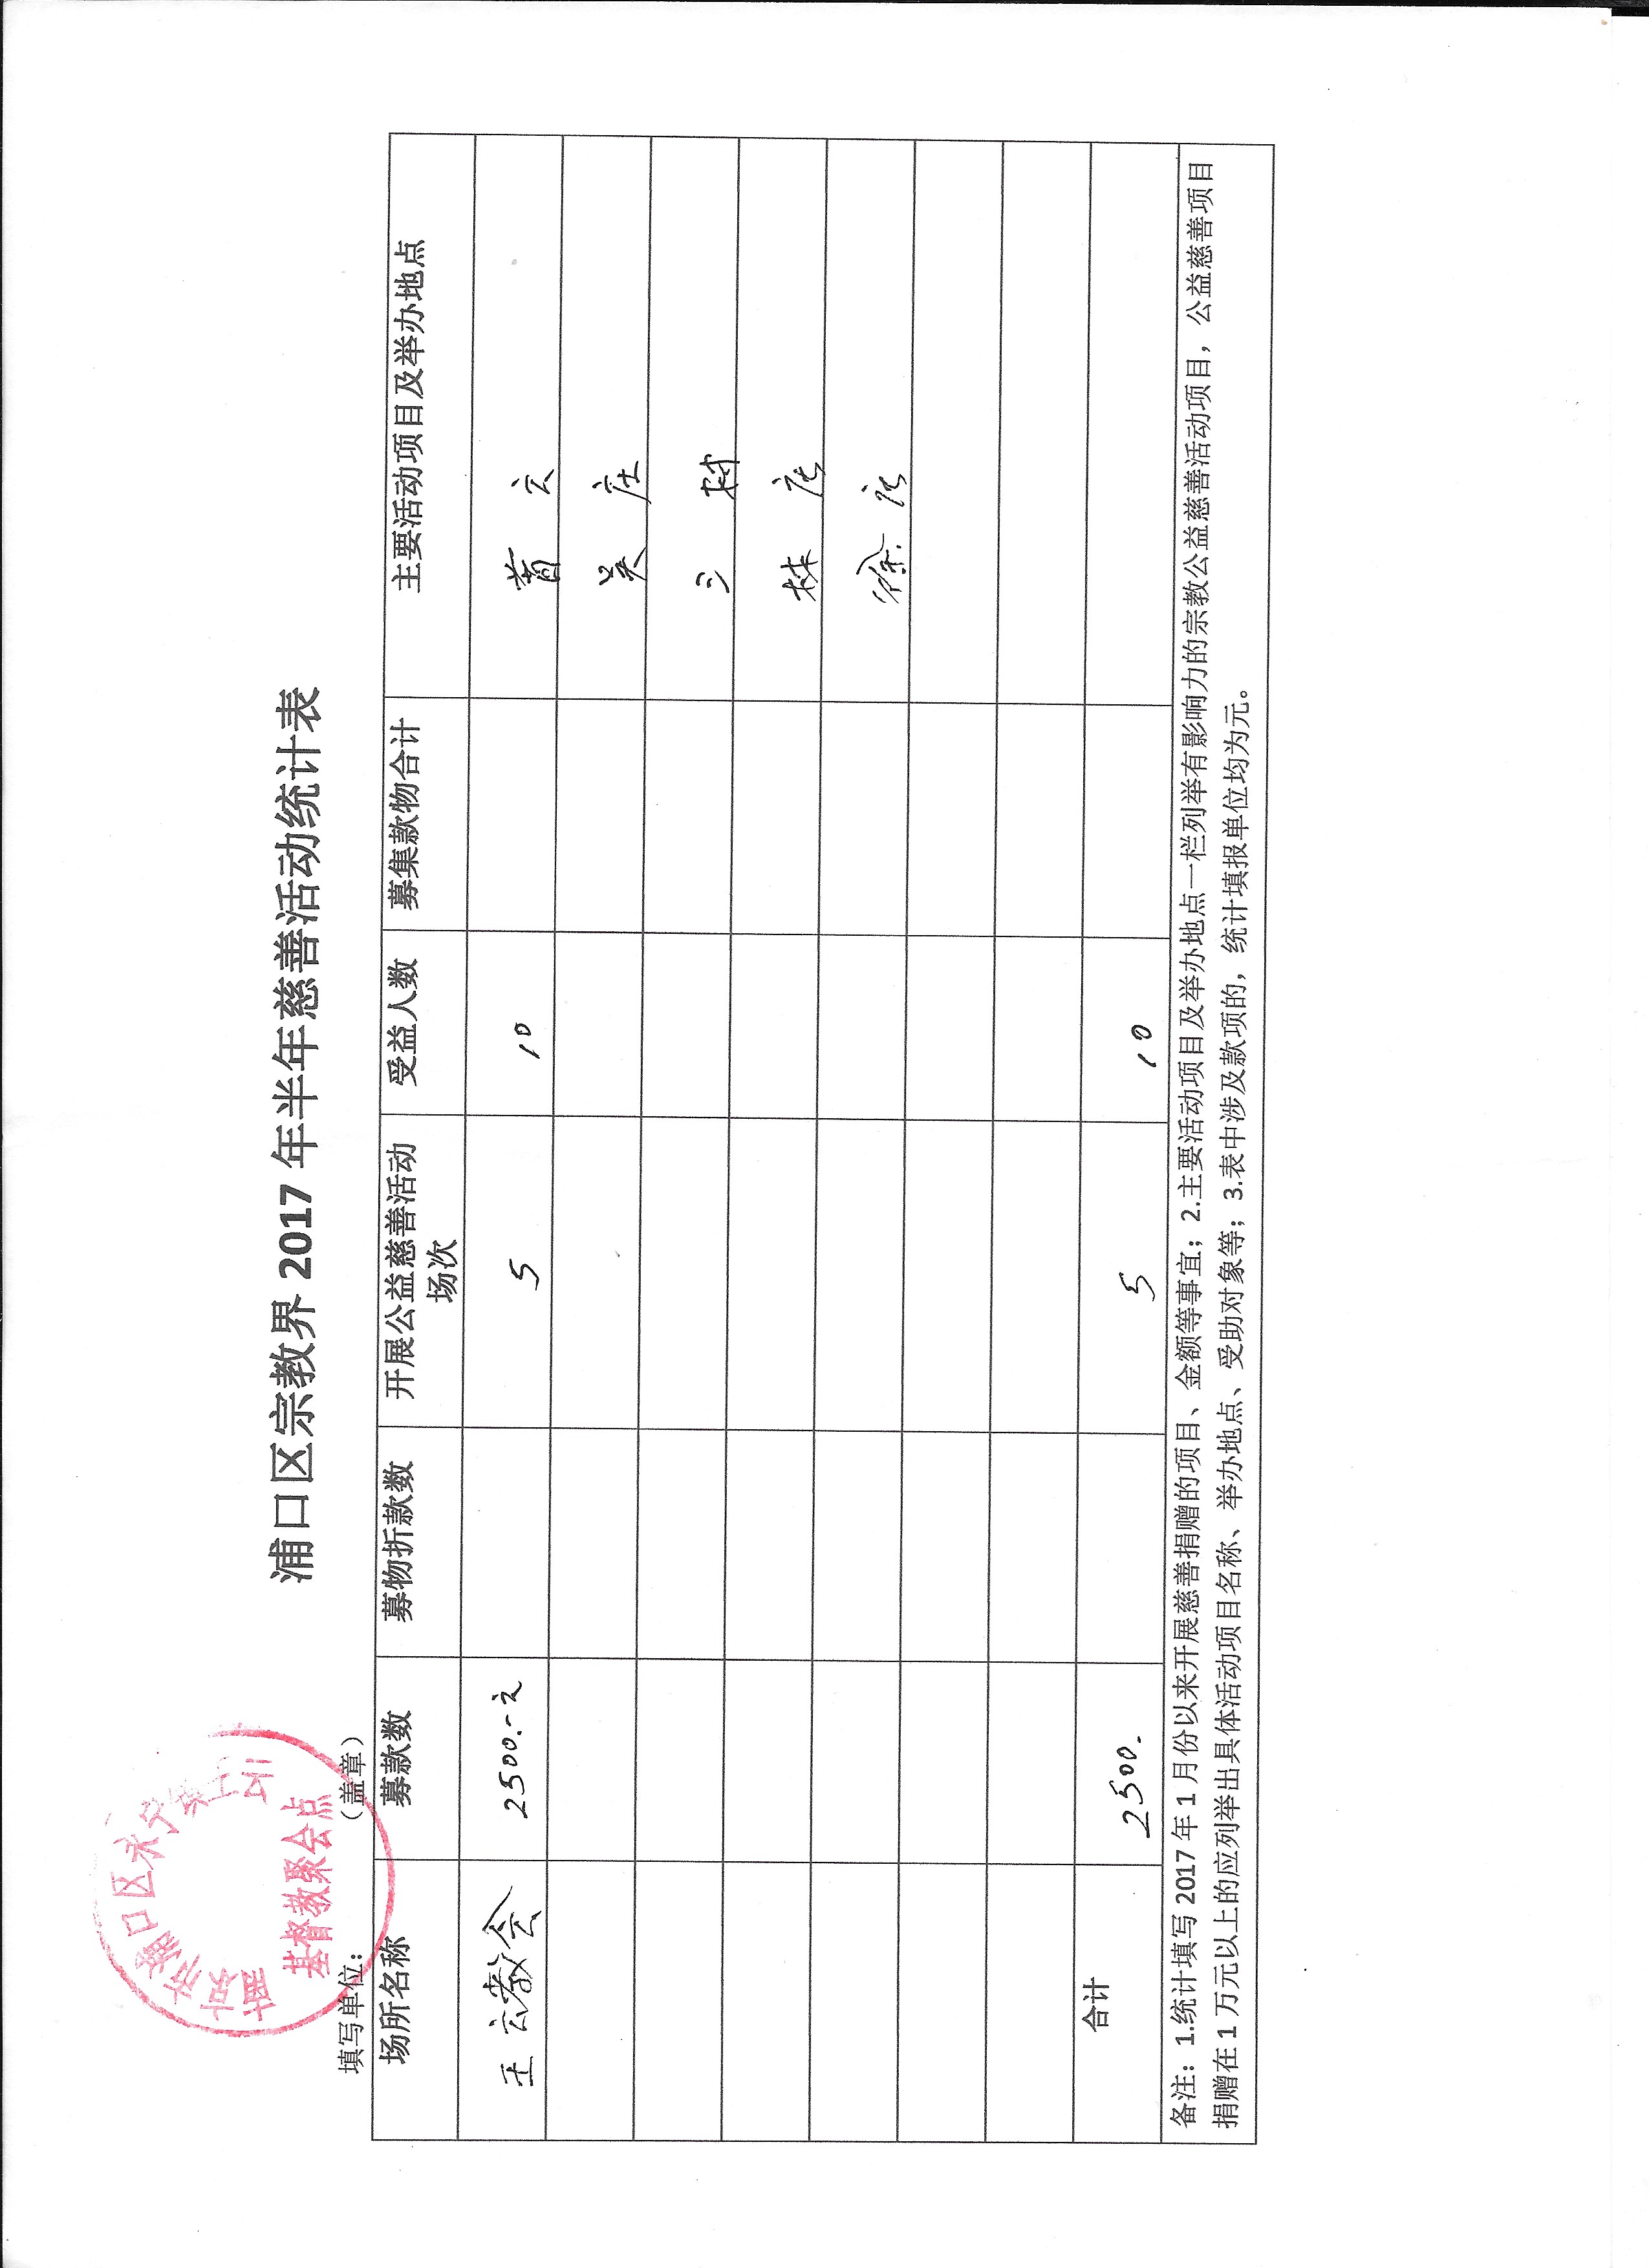 南京市浦口区永宁镇王云
基督教聚会点
浦口区宗教界 2017 年半年慈善活动统计表
填写单位： （盖章）
场所名称 募款数 募物折款数 开展公益慈善活动场次 受益人数 募集款物合计 主要活动项目及举办地点
王云教会 2500.-元 5 10
云
吴庄
三村
林庄
徐庄
合计 2500. 5 10
备注：1.统计填写 2017 年 1 月份以来开展慈善捐赠的项目、金额等事宜；2.主要活动项目及举办地点一栏列举有影响力的宗教公益慈善活动项目，公益慈善项目
捐赠在 1 万元以上的应列举出具体活动项目名称、举办地点、受助对象等；3.表中涉及款项的，统计填报单位均为元。